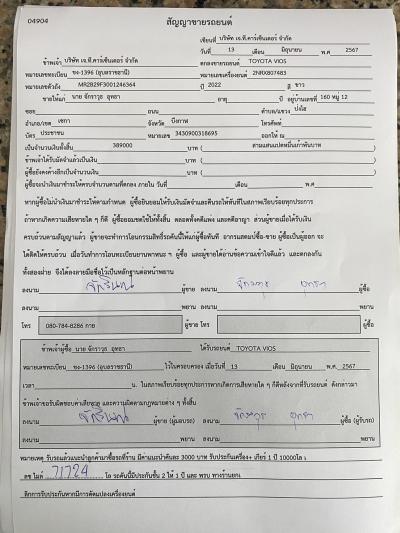 04904
สัญญาขายรถยนต์
เขียนที่ บริษัท เจ.ที.คาร์เซ็นเตอร์ จำกัด
วันที่ 13 เดือน มิถุนายน พ.ศ 2567
ข้าพเจ้า บริษัท เจ.ที.คาร์เซ็นเตอร์ จำกัด ตกลงขายรถยนต์ TOYOTA VIOS
หมายเลขทะเบียน ขง-1396 (อุบลราชธานี) หมายเลขเครื่องยนต์ 2NRX807483
หมายเลขตัวถัง MR2B29F3001246364 ปี 2022 สี ขาว
ขายให้แก่ นาย จักราวุธ อุทธา อายุ ปี อยู่บ้านเลขที่ 160 หมู่ 12
ซอย ถนน ตำบล/แขวง ปงไฮ
อำเภอ/เขต เซกา จังหวัด บึงกาฬ โทรศัพท์
บัตร ประชาชน หมายเลข 3430900318695 ออกให้ ณ
เป็นจำนวนเงินทั้งสิ้น 389000 บาท ( สามแสนแปดหมื่นเก้าพันบาท )
ข้าพเจ้าได้รับมัดจำแล้วเป็นเงิน บาท ( )
ผู้ซื้อยังคงค้างอีกเป็นจำนวนเงิน บาท ( )
ผู้ซื้อจะนำเงินมาชำระให้ครบจำนวนตามที่ตกลง ภายใน วันที่ เดือน พ.ศ
หากผู้ซื้อไม่นำเงินมาชำระให้ตามกำหนด ผู้ซื้อยินยอมให้รับเงินมัดจำและคืนรถให้ทันทีในสภาพเรียบร้อยทุกประการ
ถ้าหากเกิดความเสียหายใด ๆ ก็ดี ผู้ซื้อยอมชดใช้ให้ทั้งสิ้น ตลอดทั้งคดีแพ่ง และคดีอาญา ส่วนผู้ขายเมื่อได้รับเงิน
ครบถ้วนตามสัญญาแล้ว ผู้ขายจะทำการโอนกรรมสิทธิ์รถคันนี้ให้แก่ผู้ซื้อทันที อากรแสตมป์ซื้อ-ขาย ผู้ซื้อเป็นผู้ออก จะ
ได้ติดให้ครบถ้วน เมื่อวันทำการโอนทะเบียนยานพาหนะ ฯ ผู้ซื้อ และผู้ขายได้อ่านข้อความเข้าใจดีแล้ว และตกลงกัน
ทั้งสองฝ่าย จึงได้ลงลายมือชื่อไว้เป็นหลักฐานต่อหน้าพยาน
ลงนาม ผู้ขาย ลงนาม จักราวุธ อุทธา ผู้ซื้อ
ลงนาม พยาน ลงนาม พยาน
โทร 080-784-8286 ภาย ผู้ขาย โทร ผู้ซื้อ
ข้าพเจ้าผู้ซื้อ นาย จักราวุธ อุทธา ได้รับรถยนต์ TOYOTA VIOS
หมายเลขทะเบียน ขง-1396 (อุบลราชธานี) ไว้ในครอบครอง เมื่อวันที่ 13 เดือน มิถุนายน พ.ศ. 2567
เวลา น. ในสภาพเรียบร้อยทุกประการหากเกิดการเสียหายใด ๆ ก็ดีหลังจากที่รับรถยนต์ ดังกล่าวมา
ข้าพเจ้าขอรับผิดชอบค่าเสียหาย และความผิดตามกฎหมายต่าง ๆ ทั้งสิ้น
ลงนาม ผู้ขาย (ผู้มอบรถ) ลงนาม จักราวุธ อุทธา ผู้ซื้อ (ผู้รับรถ)
ลงนาม พยาน ลงนาม พยาน
หมายเหตุ รับรถแล้วแนะนำลูกค้ามาซื้อรถที่ร้าน มีค่าแนะนำคันละ 3000 บาท รับประกันเครื่อง+ เกียร์ 1 ปี 10000โล
เลข ไมล์ 71724 โล รถคันนี้มีประกันชั้น 2 ให้ 1 ปี และ พรบ ทางร้านยก
ยกเลิกการรับประกันหากมีการดัดแปลงเครื่องยนต์